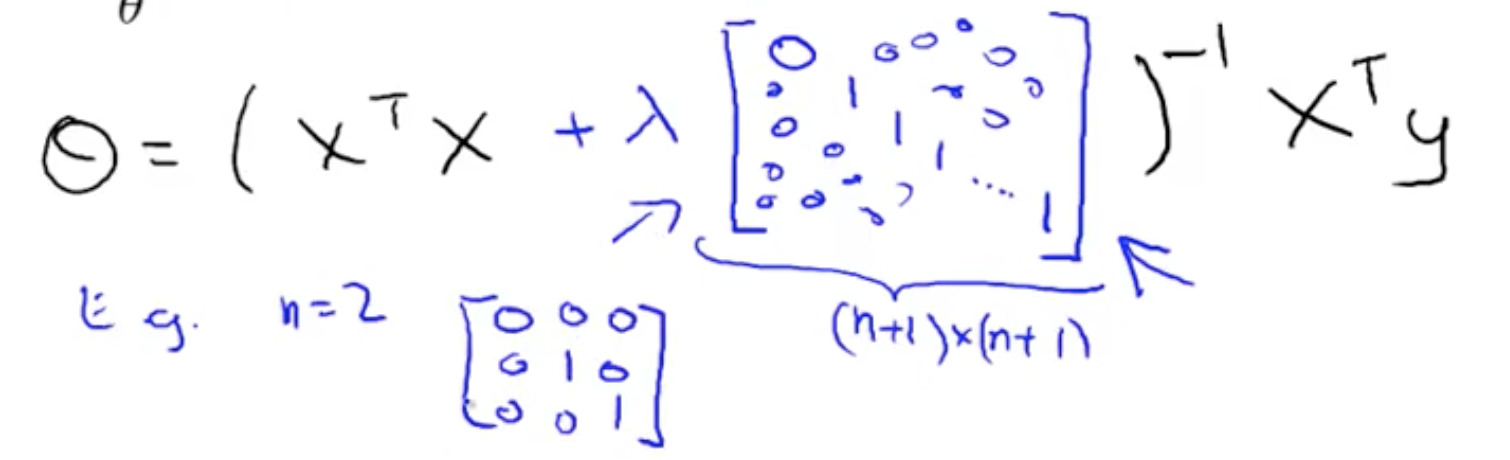 θ
θ = ( X^T X + λ [ 0 0 0 0 0 ; 0 1 0 0 ; 0 1 0 ; 0 0 1 ; 0 0 0 0 0 .... 1 ] )^-1 X^T y
(n+1)×(n+1)
E.g. n=2 [ 0 0 0 ; 0 1 0 ; 0 0 1 ]